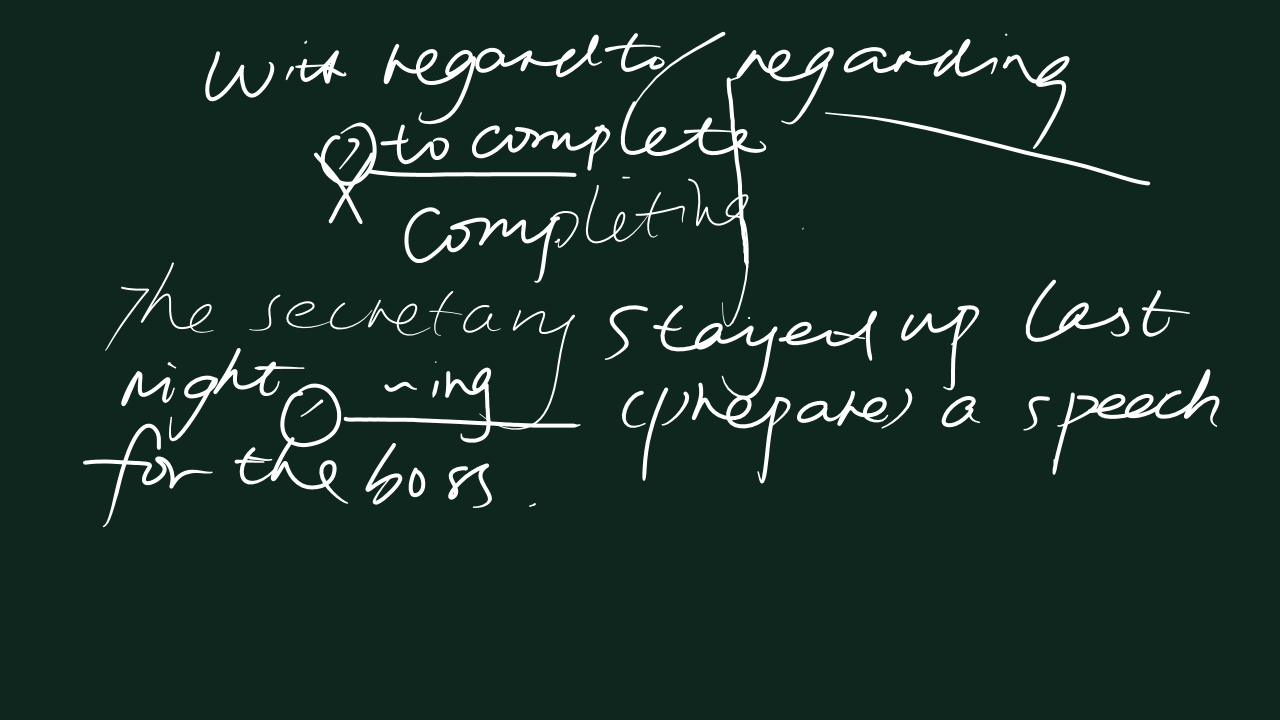 With regard to / regarding
, to complete
completing
The secretary stayed up last
night, ~ing (prepare) a speech
for the boss.